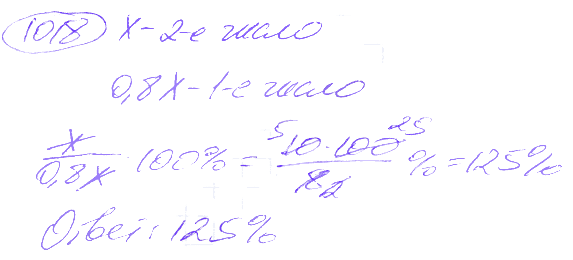 1018 x - 2-е число
0,8x - 1-е число
x/0,8x · 100% = 10·100/8 % = 125%
Ответ: 125%